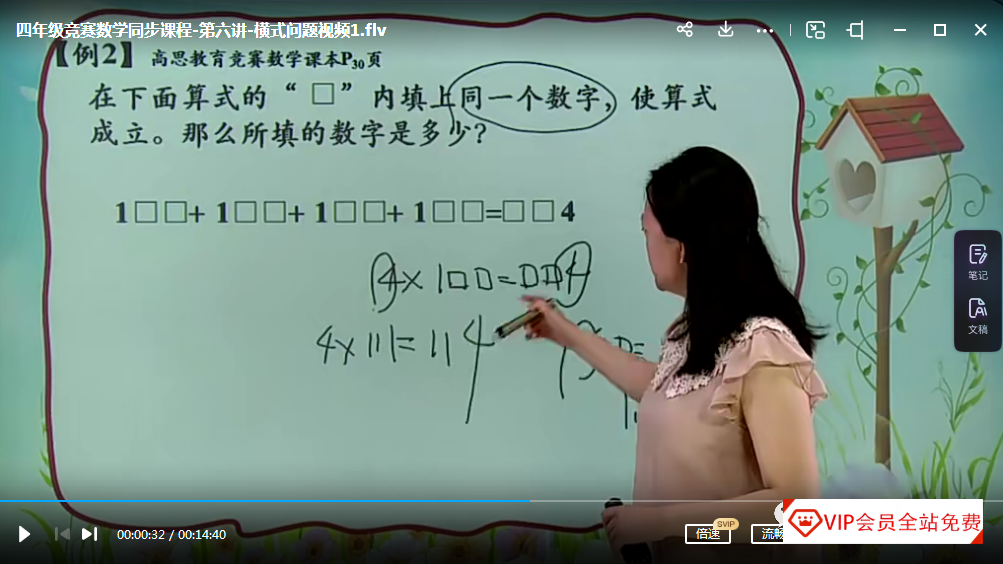 四年级竞赛数学同步课程-第六讲-横式问题视频1.flv
【例2】 高思教育竞赛数学课本P30页
在下面算式的“□”内填上同一个数字，使算式
成立。那么所填的数字是多少?
1□□+ 1□□+ 1□□+ 1□□=□□4
4×1□□=□□4
4×111=114
笔记
文稿
00:00:32 / 00:14:40
倍速
SVIP
流畅
VIP会员全站免费